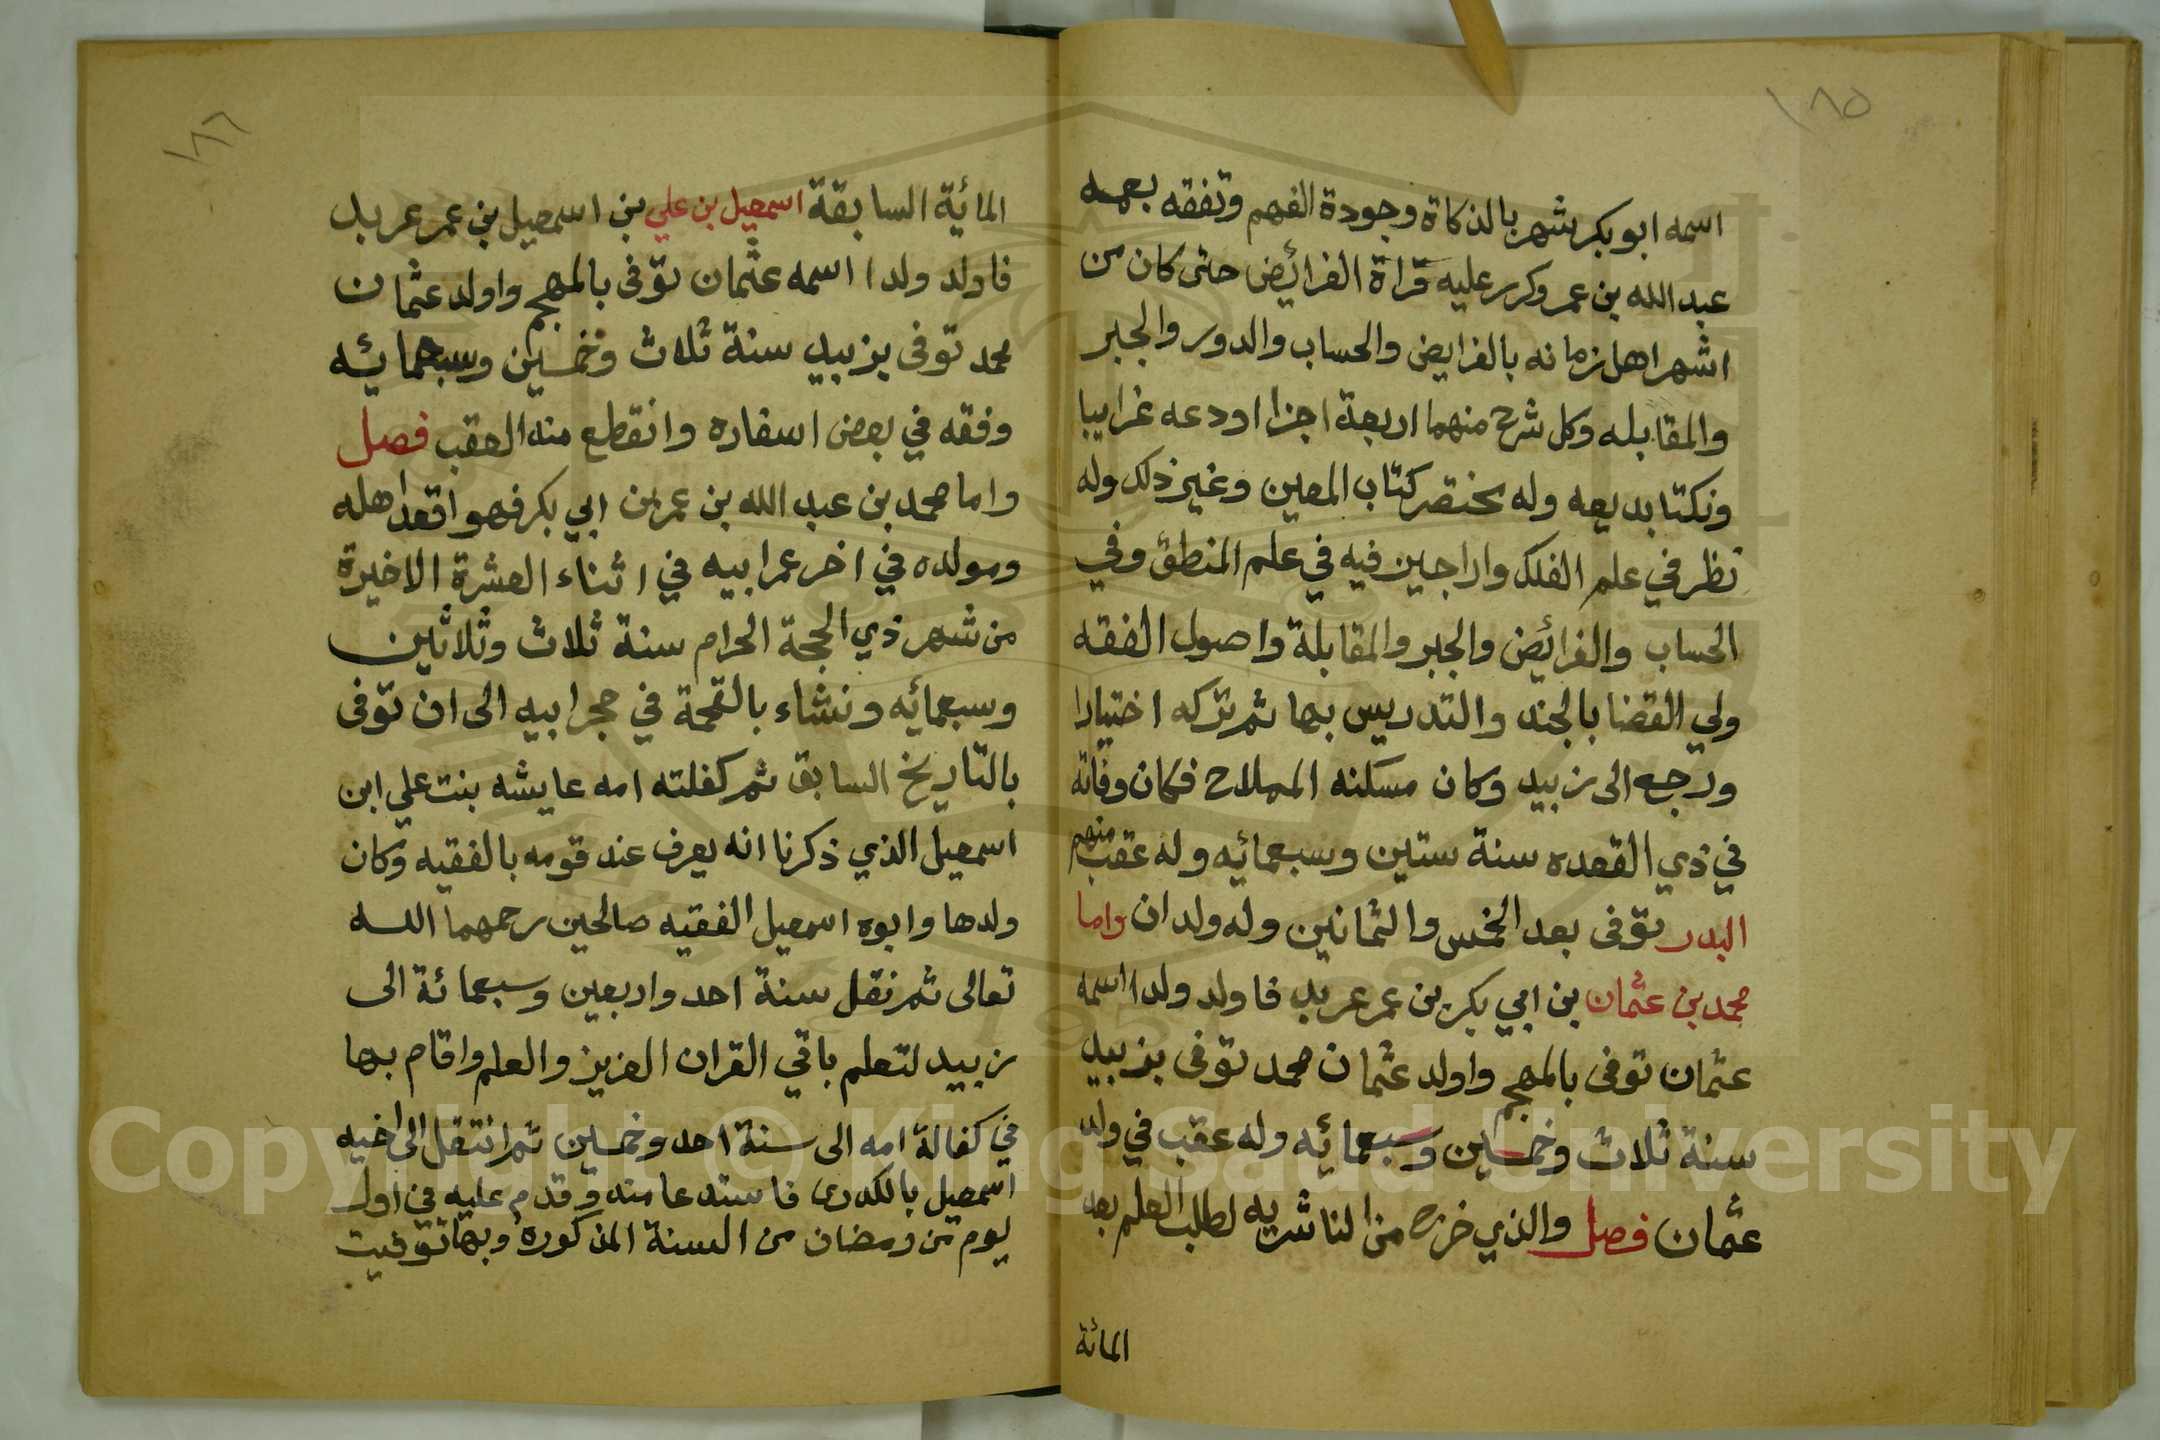 ١٨٥
اسمه ابو بكر شهر بالذكاة وجودة الفهم وتفقه بعمه
عبد الله بن عمر وكرر عليه قراة الفرائض حتى كان من
اشهر اهل زمانه بالفرايض والحساب والدور والجبر
والمقابله وكل شرح منهما اربعة اجزا اودعه غرايبا
ونكتا بديعه وله مختصر كتاب المعين وغير ذلك وله
نظر في علم الفلك واراجين فيه في علم المنطق وفي
الحساب والفرائض والجبر والمقابلة واصول الفقه
ولي القضا بالجند والتدريس بها ثم تركه اختيارا
ورجع الى زبيد وكان مسكنه المملاح فكان وفاته
في ذي القعده سنة ستين وسبعمائه وله عقب منهم
البدر توفى بعد الخمس والثمانين وله ولدان واما
محمد بن عثمان بن ابي بكر بن عمر عربد فاولد ولدا اسمه
عثمان توفى بالمهجم واولد عثمان محمد توفى بزبيد
سنة ثلاث وخمسين وسبعمائه وله عقب في ولد
عثمان فصل والذي خرج من الناشريه لطلب العلم بعد
المائة
١٨٦
المائة السابقة اسمعيل بن علي بن اسمعيل بن عمر عربد
فاولد ولدا اسمه عثمان توفى بالمهجم واولد عثمان
محمد توفى بزبيد سنة ثلاث وخمسين وسبعمائه
وفقه في بعض اسفاره وانقطع منه العقب فصل
واما محمد بن عبد الله بن عمر بن ابي بكر فهو اقعد اهله
ومولده في اخر عمر ابيه في اثناء العشرة الاخيرة
من شهر ذي الحجة الحرام سنة ثلاث وثلاثين
وسبعمائه ونشاء بالقحمة في حجر ابيه الى ان توفى
بالتاريخ السابق ثم كفلته امه عايشه بنت علي ابن
اسمعيل الذي ذكرنا انه يعرف عند قومه بالفقيه وكان
ولدها وابوه اسمعيل الفقيه صالحين رحمهما الله
تعالى ثم نقل سنة احد واربعين وسبعمائة الى
زبيد لتعلم باقي القران العزيز والعلم واقام بها
في كفالة امه الى سنة احد وخمسين ثم انتقل الى اخيه
اسمعيل بالكدرى فاسته عامنه وقدم عليه في اول
يوم من رمضان من السنة المذكورة وبها توفيت
Copyright © King Saud University